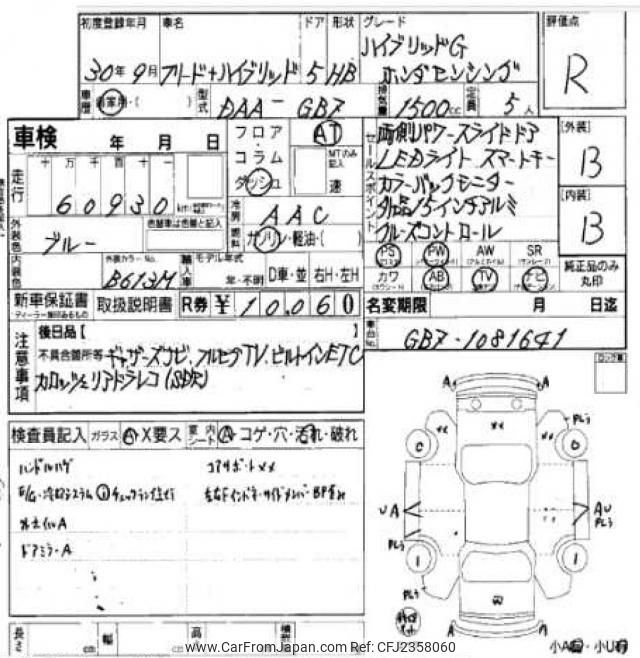 初度登録年月 車名 ドア 形状 グレード 評価点
30年9月 フリード+ハイブリッド 5 HB ハイブリッドG
ホンダセンシング
R
車歴 自家用・( ) 型式 DAA-GB7 排気量 1500cc 定員 5人
車検 年 月 日
フロア・コラム ダッシュ AT MTのみ記入 速
セールスポイント
両側パワースライドドア
LEDライト スマートキー
カラーバックモニター
外品15インチアルミ
クルーズコントロール
[外装] B
[内装] B
走行 十 万 千 百 十 一
60930 km
冷房 AAC
燃料 ガソリン・軽油・( )
外装色 ブルー 色替車は色替と記入
内装色 外装カラーNo. B613M 輸入車 モデル年式 年・不明 D車・並 右H・左H
PS PW AW SR
カワ AB TV ナビ
純正品のみ丸印
新車保証書 取扱説明書 R券 ¥10,060
ディーラー無印あるもの
名変期限 月 日迄
車台No. GB7-1081641
注意事項
後日品【 】
不具合箇所等 ギャザーズナビ、フルセグTV、ビルトインETC
カロッツェリアドラレコ(SDR)
検査員記入 ガラス A・X要ス 室内 シート A・コゲ・穴・汚れ・破れ
ハンドルハゲ コアサポートXX
E/G・冷却システム チェックランプ点灯
外ホイルA
ドアミラーA
A A
XX
XX
0 0
UA AU
1 1
W
A A
長さ cm 幅 cm 高 cm
小A・小U
www.CarFromJapan.com Ref: CFJ2358060